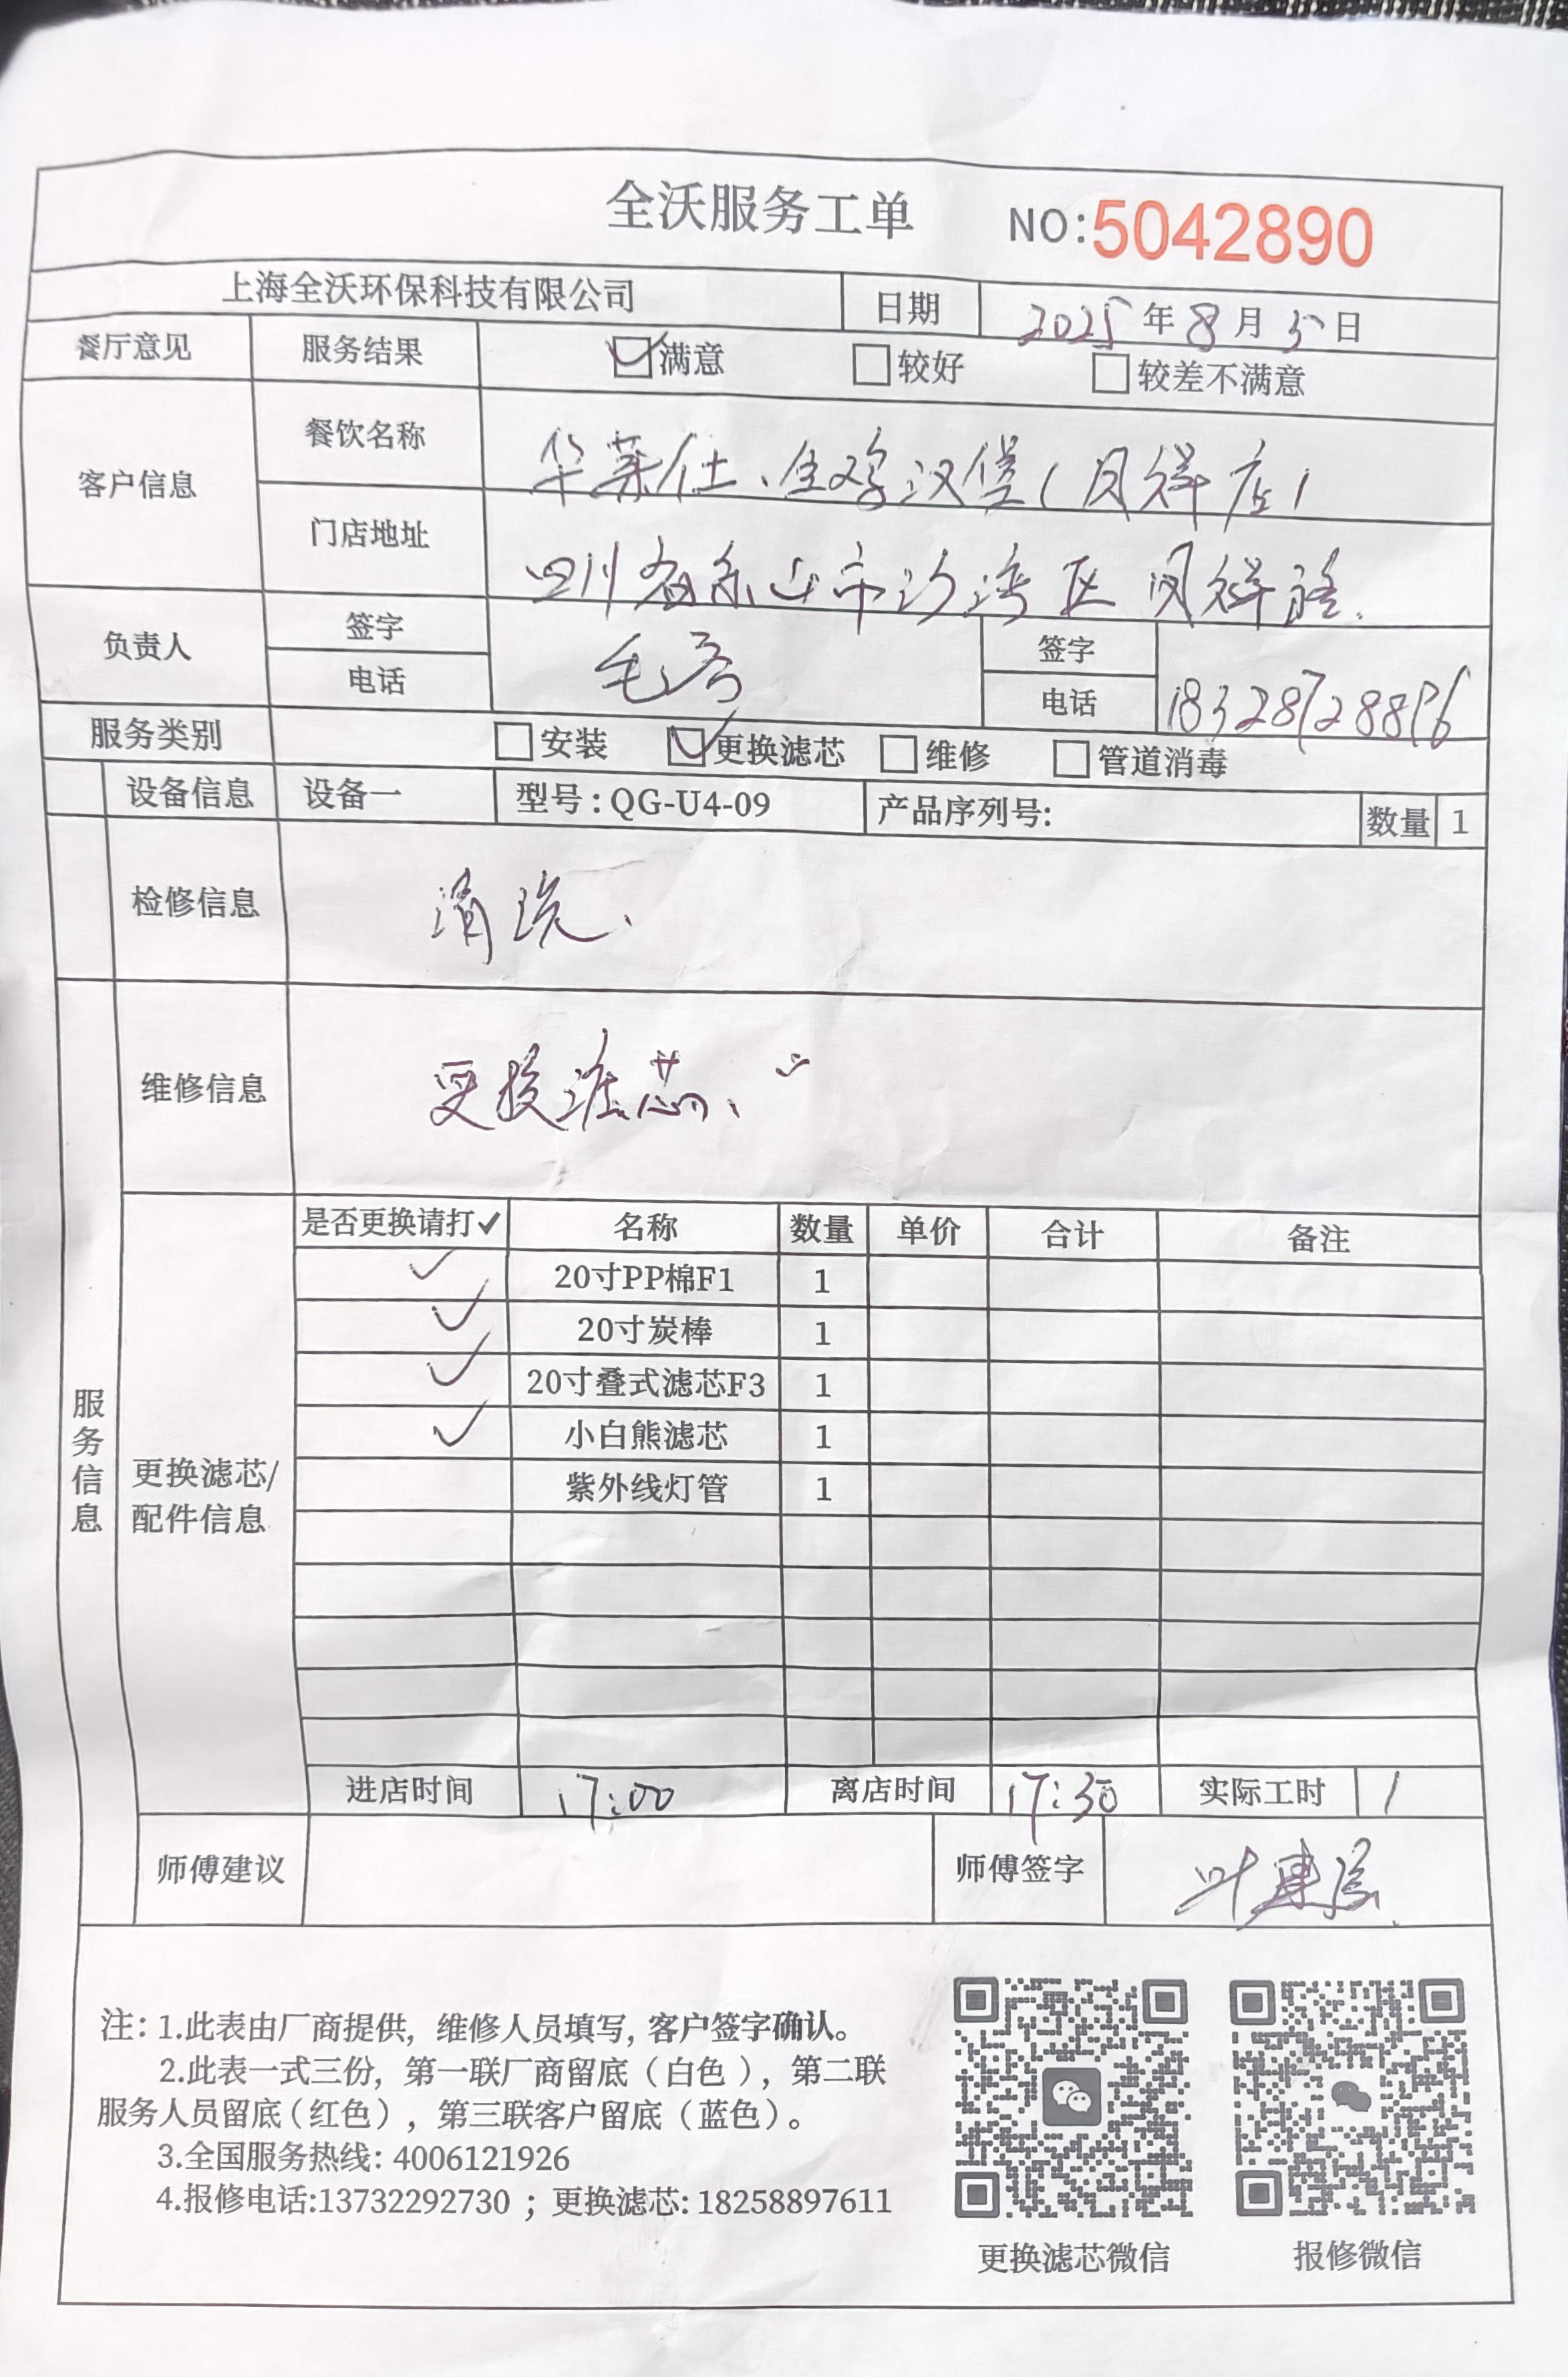 全沃服务工单 NO:5042890
上海全沃环保科技有限公司 日期 2025年8月 日
餐厅意见 服务结果 满意 较好 较差不满意
客户信息 餐饮名称 华莱仕·全鸡汉堡(凤祥店)
门店地址 四川省乐山市沙湾区凤祥路.
负责人 签字 签字
电话 电话
服务类别 安装 更换滤芯 维修 管道消毒
设备信息 设备一 型号:QG-U4-09 产品序列号: 数量 1
检修信息 清洗、
服务信息
维修信息 更换滤芯、
更换滤芯/配件信息
是否更换请打✓ 名称 数量 单价 合计 备注
✓ 20寸PP棉F1 1
✓ 20寸炭棒 1
✓ 20寸叠式滤芯F3 1
✓ 小白熊滤芯 1
紫外线灯管 1
进店时间 17:00 离店时间 17:30 实际工时 1
师傅建议 师傅签字
注: 1.此表由厂商提供, 维修人员填写, 客户签字确认。
2.此表一式三份, 第一联厂商留底（白色）, 第二联
服务人员留底（红色）, 第三联客户留底（蓝色）。
3.全国服务热线: 4006121926
4.报修电话:13732292730 ; 更换滤芯: 18258897611
更换滤芯微信 报修微信